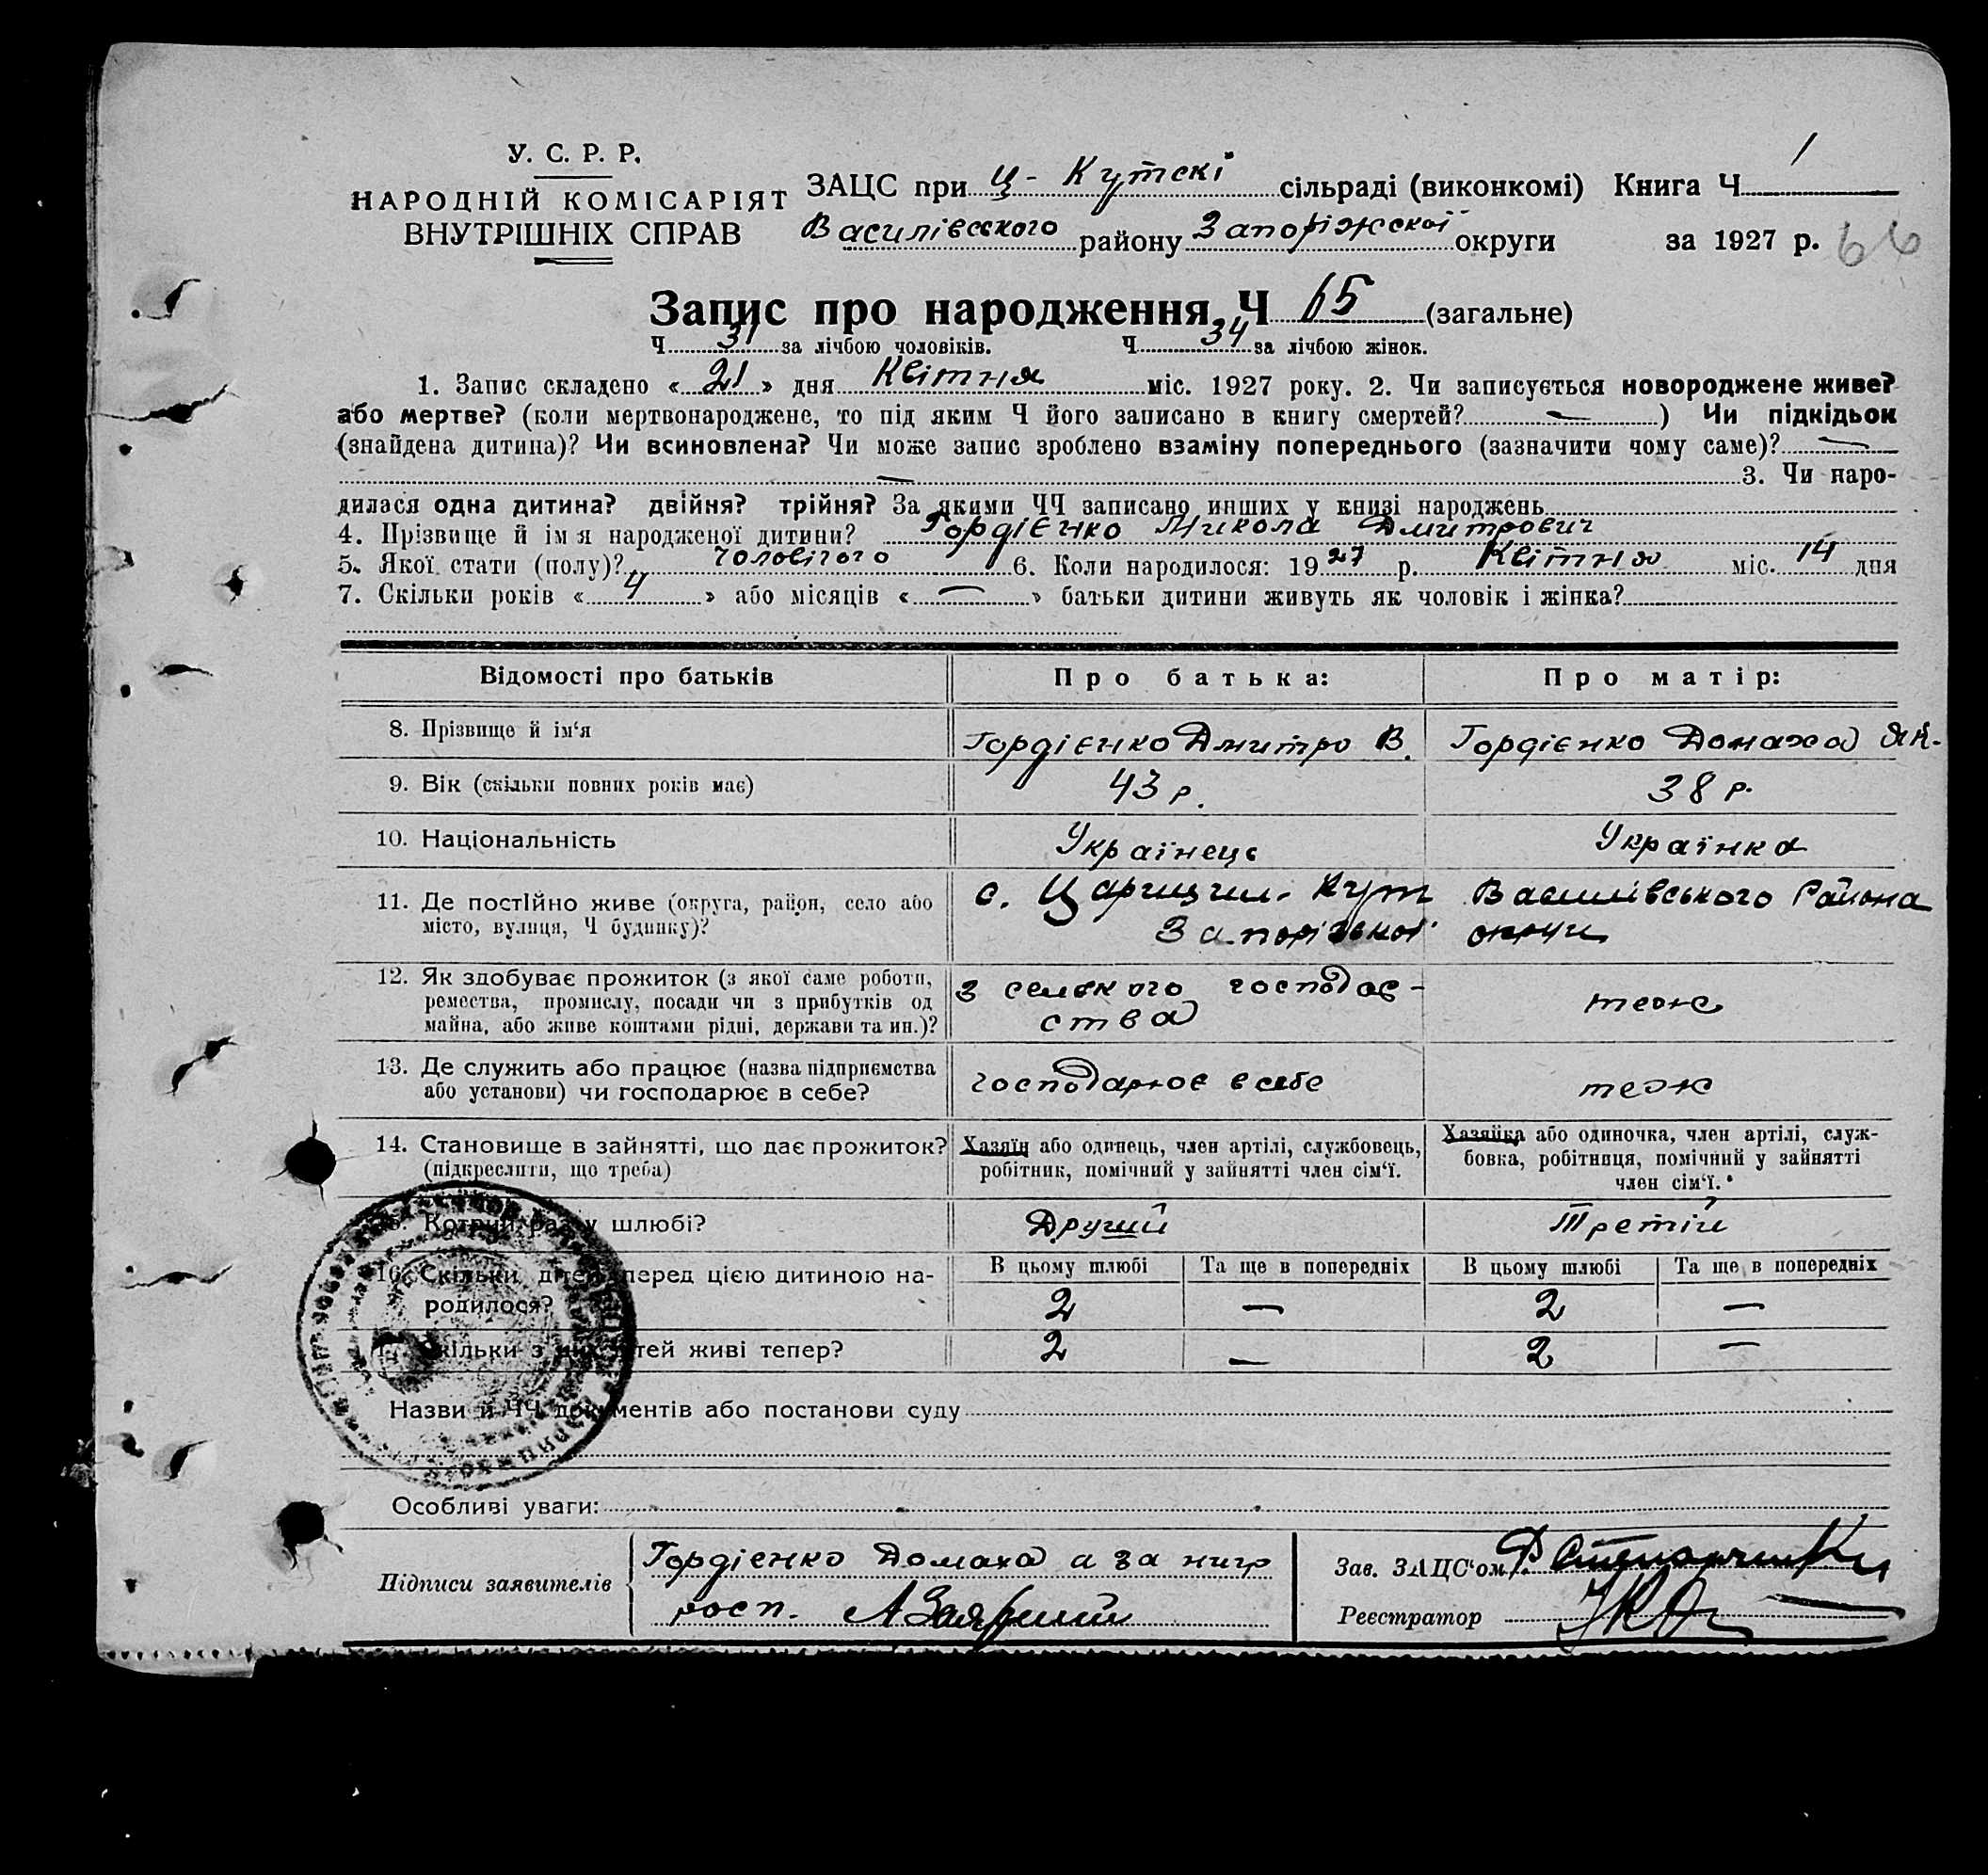 У. С. Р. Р.
НАРОДНІЙ КОМІСАРІЯТ
ВНУТРІШНІХ СПРАВ
ЗАЦС при Ц-Кутскі сільраді (виконкомі) Книга Ч 1
Василівського району Запоріжскої округи за 1927 р. 66
Запис про народження Ч 65 (загальне)
Ч 31 за лічбою чоловіків. Ч 34 за лічбою жінок.
1. Запис складено « 21 » дня Квітня міс. 1927 року. 2. Чи записується новороджене живе?
або мертве? (коли мертвонароджене, то під яким Ч його записано в книгу смертей? — ) Чи підкідьок
(знайдена дитина)? Чи всиновлена? Чи може запис зроблено взаміну попереднього (зазначити чому саме)? —
— 3. Чи наро-
дилася одна дитина? двійня? трійня? За якими ЧЧ записано инших у книзі народжень
4. Прізвище й ім'я народженої дитини? Гордієнко Микола Дмитрович
5. Якої стати (полу)? чоловічого 6. Коли народилося: 1927 р. Квітня міс. 14 дня
7. Скільки років « 4 » або місяців « — » батьки дитини живуть як чоловік і жінка?
Відомості про батьків Про батька: Про матір:
8. Прізвище й ім'я Гордієнко Дмитро В. Гордієнко Домаха Як.
9. Вік (скільки повних років має) 43 р. 38 р.
10. Національність Українець Українка
11. Де постійно живе (округа, район, село або с. Царицин. Кут Василівського Района
місто, вулиця, Ч будинку)? Запорізької округи
12. Як здобуває прожиток (з якої саме роботи, з сельского господас-
ремества, промислу, посади чи з прибутків од ства теж
майна, або живе коштами рідні, держави та ин.)?
13. Де служить або працює (назва підприємства господарює в себе теж
або установи) чи господарює в себе?
14. Становище в зайнятті, що дає прожиток? Хазяїн або одинець, член артілі, службовець, Хазяйка або одиночка, член артілі, служ-
(підкреслити, що треба) робітник, помічний у зайнятті член сім'ї. бовка, робітниця, помічний у зайнятті
член сім'ї.
15. Котрий раз у шлюбі? Другий Третій
16. Скільки дітей перед цією дитиною на- В цьому шлюбі Та ще в попередніх В цьому шлюбі Та ще в попередніх
родилося? 2 — 2 —
17. Скільки з них дітей живі тепер? 2 — 2 —
Назви й ЧЧ документів або постанови суду
Особливі уваги:
Підписи заявителів Гордієнко Домаха а за
росп.
Зав. ЗАЦС'ом
Реєстратор